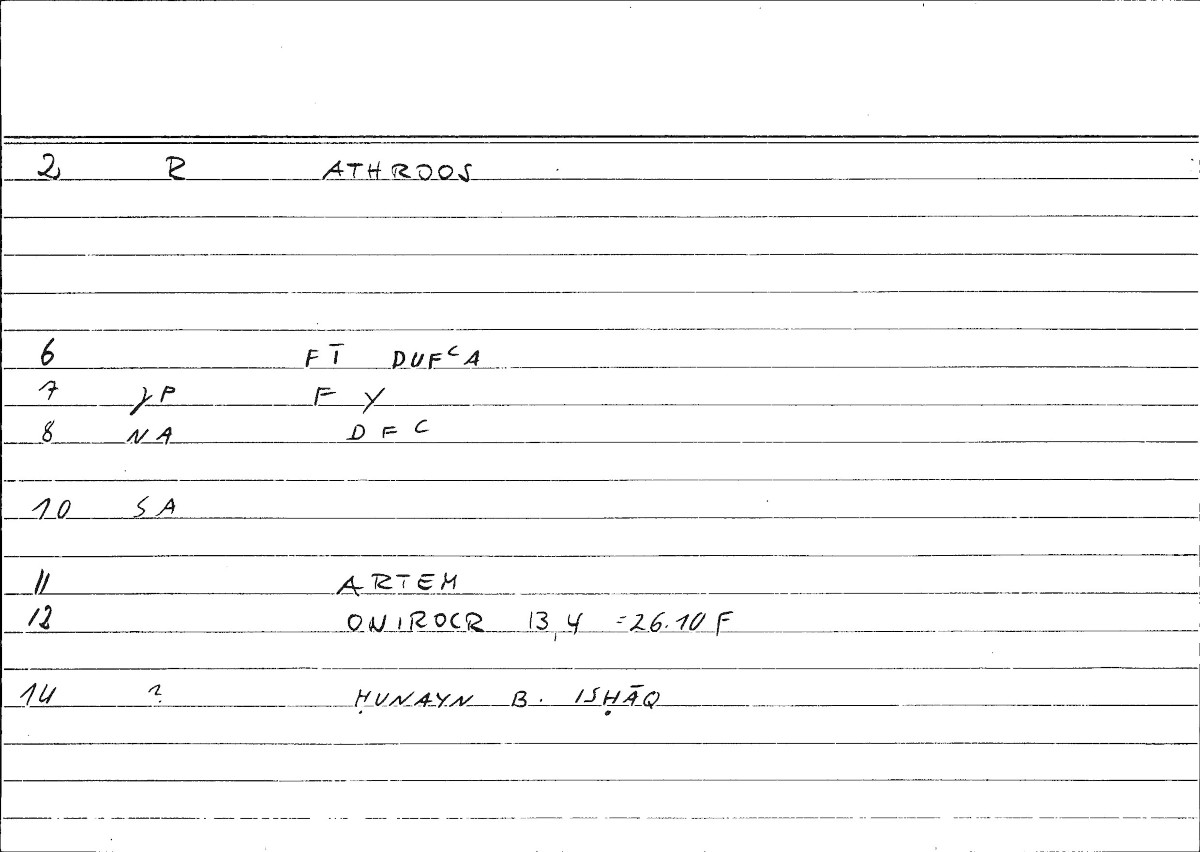 2 R ATHROOS
6 FĪ DUFᶜA
7 γP F Y
8 NA D F C
10 SA
11 ARTEM
12 ONIROCR 13,4 =26.10 F
14 ? ḤUNAYN B. ISḤĀQ